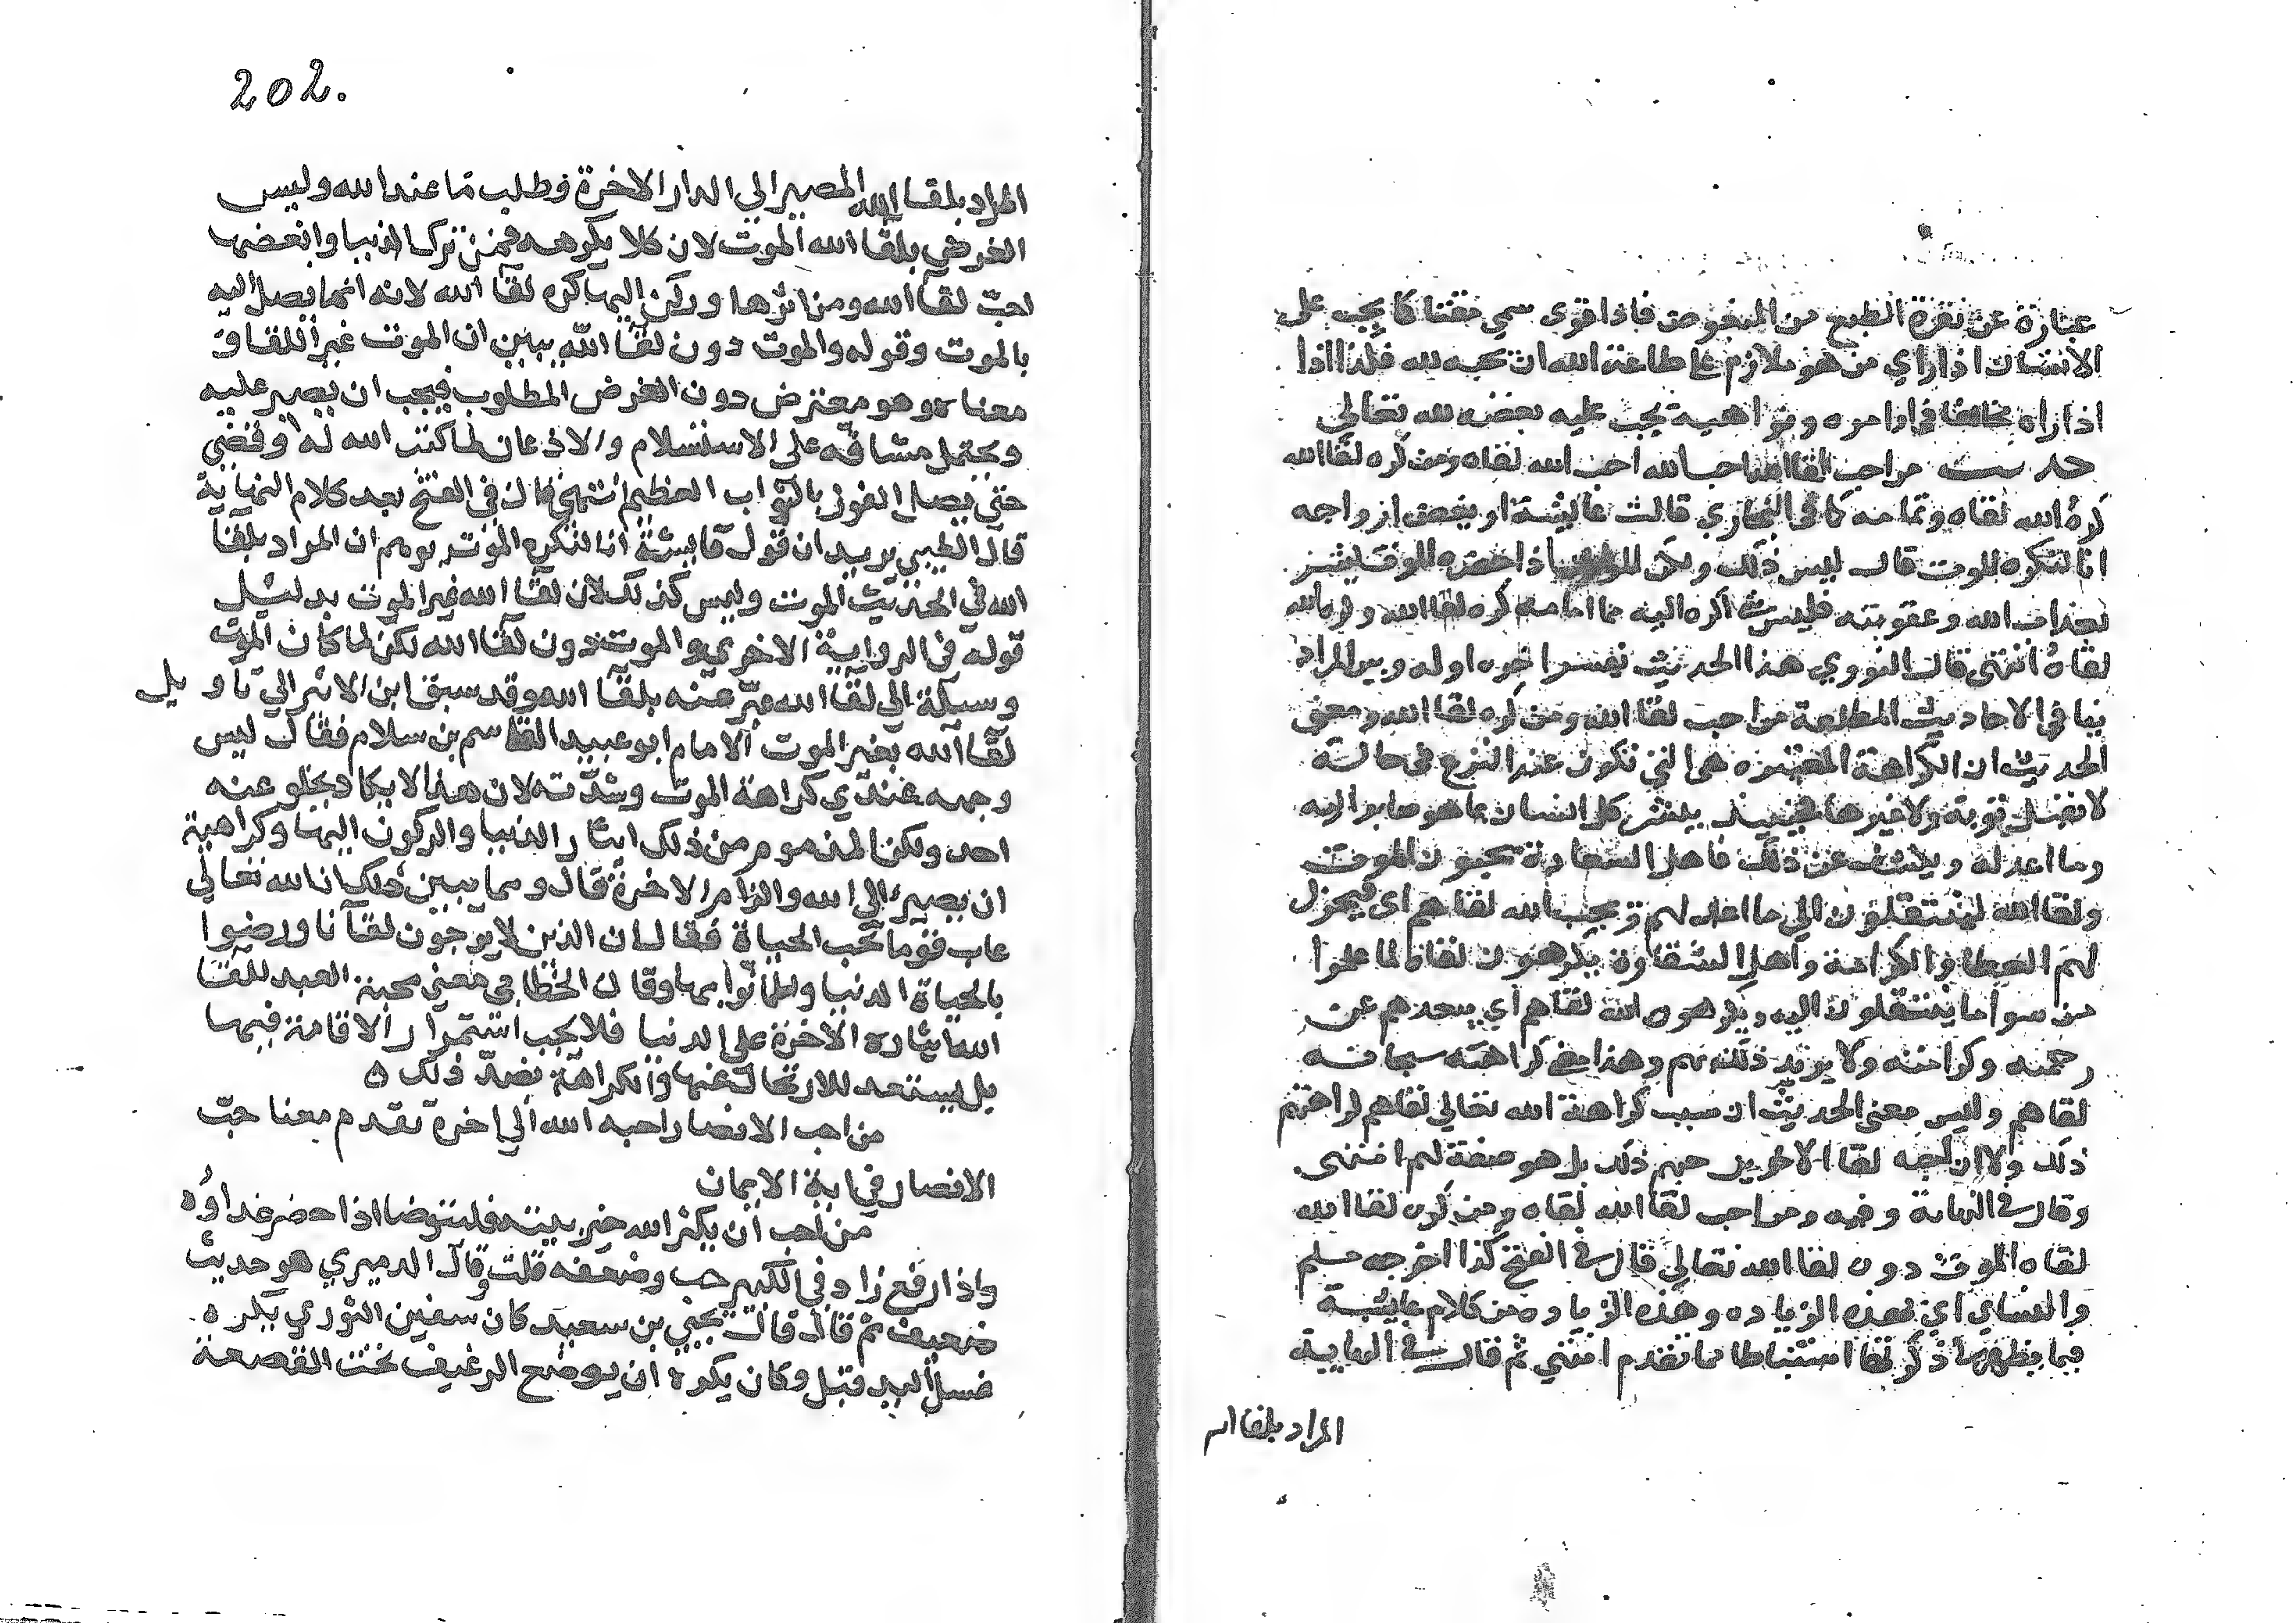 عبارة عن نفرة الطبع من المبغوض فاذا قوى سمي مقتنا كا يجب على
الانسان اذا راي من هو ملازم على طاعة الله ان يحبه لله فلذا اذا
اذا راه مخالفا في اوامره ونواهيه يجب عليه بغضه لله تعالي
حديث من احب لقا الله احب الله لقاه ومن كره لقا الله
كره الله لقاه وتمامه كا في البخاري قالت عايشة او بعض ازواجه
انا لنكره الموت قال ليس ذلك ولكن اذا حضره الموت يبشر
بعذاب الله وعقوبته فليس شي اكره اليه مما امامه كره لقا الله وكره الله
لقاه انتهى قال النووي هذا الحديث يفسر اخره اوله ويبين المراد
بباقي الاحاديث المطلقة من احب لقا الله ومن كره لقا الله ومعنى
الحديث ان الكراهة المعتبره هي التي تكون عند النزع في حالة
لا تقبل توبة ولا غيرها فحينيذ يبشر كل انسان بما هو صاير اليه
وما اعد له ويكشف عن ذلك فاهل السعادة يحبون الموت
ولقا الله لينتقلون الي ما اعد لهم ويحب الله لقاهم اى فيجزل
لهم العطا والكرامة واهل الشقاوة يكرهون لقاه لما علموا
من سوا ما ينتقلون اليه ويكرهون الله لقاهم اي يبعدهم عن
رحمته وكرامته ولا يريد ذلك بهم وهذا معنى كراهته سبحانه
لقاهم وليس معنى الحديث ان سبب كراهة الله تعالي لقاهم كراهتهم
ذلك ولا ان حبه لقا الاخرين حبهم ذلك بل هو صفة لهم انتهى
وقال في النهاية وفيه ومن احب لقا الله لقاه ومن كره لقا الله
لقاه الموت دون لقا الله تعالي قال في الفتح كذا اخرجه مسلم
والنساي اي بهذه الزياده وهذه الزياده من كلام عايشة
فيما يظهر ذكرتها استنباطا مما تقدم انتهي ثم قال في النهاية
المراد بلقا ا
202.
المراد بلقا الله المصير الي الدار الاخرة وطلب مما عند الله وليس
الغرض بلقا الله الموت لان كلا يكرهه فمن ترك الدنيا وابغضها
احبّ لقا الله ومن اثرها وركن اليها كره لقا الله لانه انما يصل اليه
بالموت وقوله والموت دون لقا الله يبين ان الموت غير اللقا و
معناه وهو معترض دون الغرض المطلوب فيجب ان يصبر عليه
ويحتمل مشاقه على الاستسلام والاذعان لما كتب الله له وقضى
حتى يصل الفوز بالثواب العظيم انتهى قال في الفتح بعد كلام النهاية
قال الطيبي يريد ان قول عايشة انا لنكره الموت يوهم ان المراد بلقا
الله في الحديث الموت وليس كذلك لان لقا الله غير الموت بدليل
قوله في الرواية الاخري والموت دون لقا الله لكن لما كان الموت
وسيلة الي لقا الله عبّر عنه بلقا الله وقد سبق ابن الاثير الي تاويل
لقا الله بغير الموت الامام ابو عبيد القاسم بن سلام فقال ليس
وجهه عندي كراهة الموت وشدّته لان هذا لا يكاد يخلو عنه
احد ولكن المذموم من ذلك ايثار الدنيا والركون اليها وكراهية
ان يصير الي الله والدار الاخرة قال ومما يبين ذلك ان الله تعالي
عاب قوما بحب الحياة فقال ان الذين لا يرجون لقآنا ورضوا
بالحياة الدنيا واطمانوا بها وقال الخطابي معني محبة العبد للقا
الله ايثاره الاخرة على الدنيا فلا يحب استمرار الاقامة فيها
بل يستعد للارتحال عنها والكراهة بضدّ ذلك ه
من احب الانصار احبه الله الي اخرة تقدم معنا حبّ
الانصار في اية الايمان
من احب ان يكثر الله خير بيته فليتوضا اذا حضر غداؤه
واذا رفع زاد في الكبير حب وضعفه قلت وقال الدميري هو حديث
ضعيف ثم قال قال يحيى بن سعيد كان سفين الثوري يكره
غسل اليد قبل وكان يكره ان يوضع الرغيف تحت القصعة